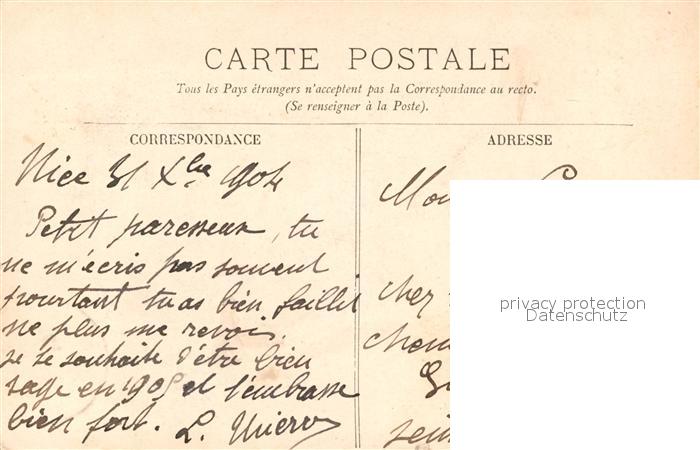 CARTE POSTALE
Tous les Pays étrangers n'acceptent pas la Correspondance au recto.
(Se renseigner à la Poste).
CORRESPONDANCE
Nice 31 Xbre 1904
Petit paresseux, tu
ne m'ecris pas souvent
pourtant tu as bien faillit
ne plus me revoir,
je te souhaite d'être bien
sage en 1905 et t'embrasse
bien fort. L.
ADRESSE
chez
privacy protection
Datenschutz